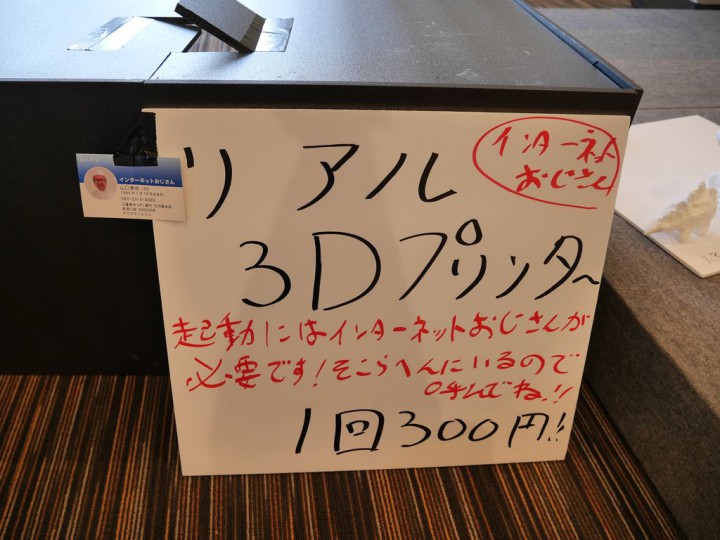 インターネット
おじさん
リアル
3Dプリンタ〜
起動にはインターネットおじさんが
必要です!そこらへんにいるので
呼んでね!!
1回300円!!
インターネットおじさん